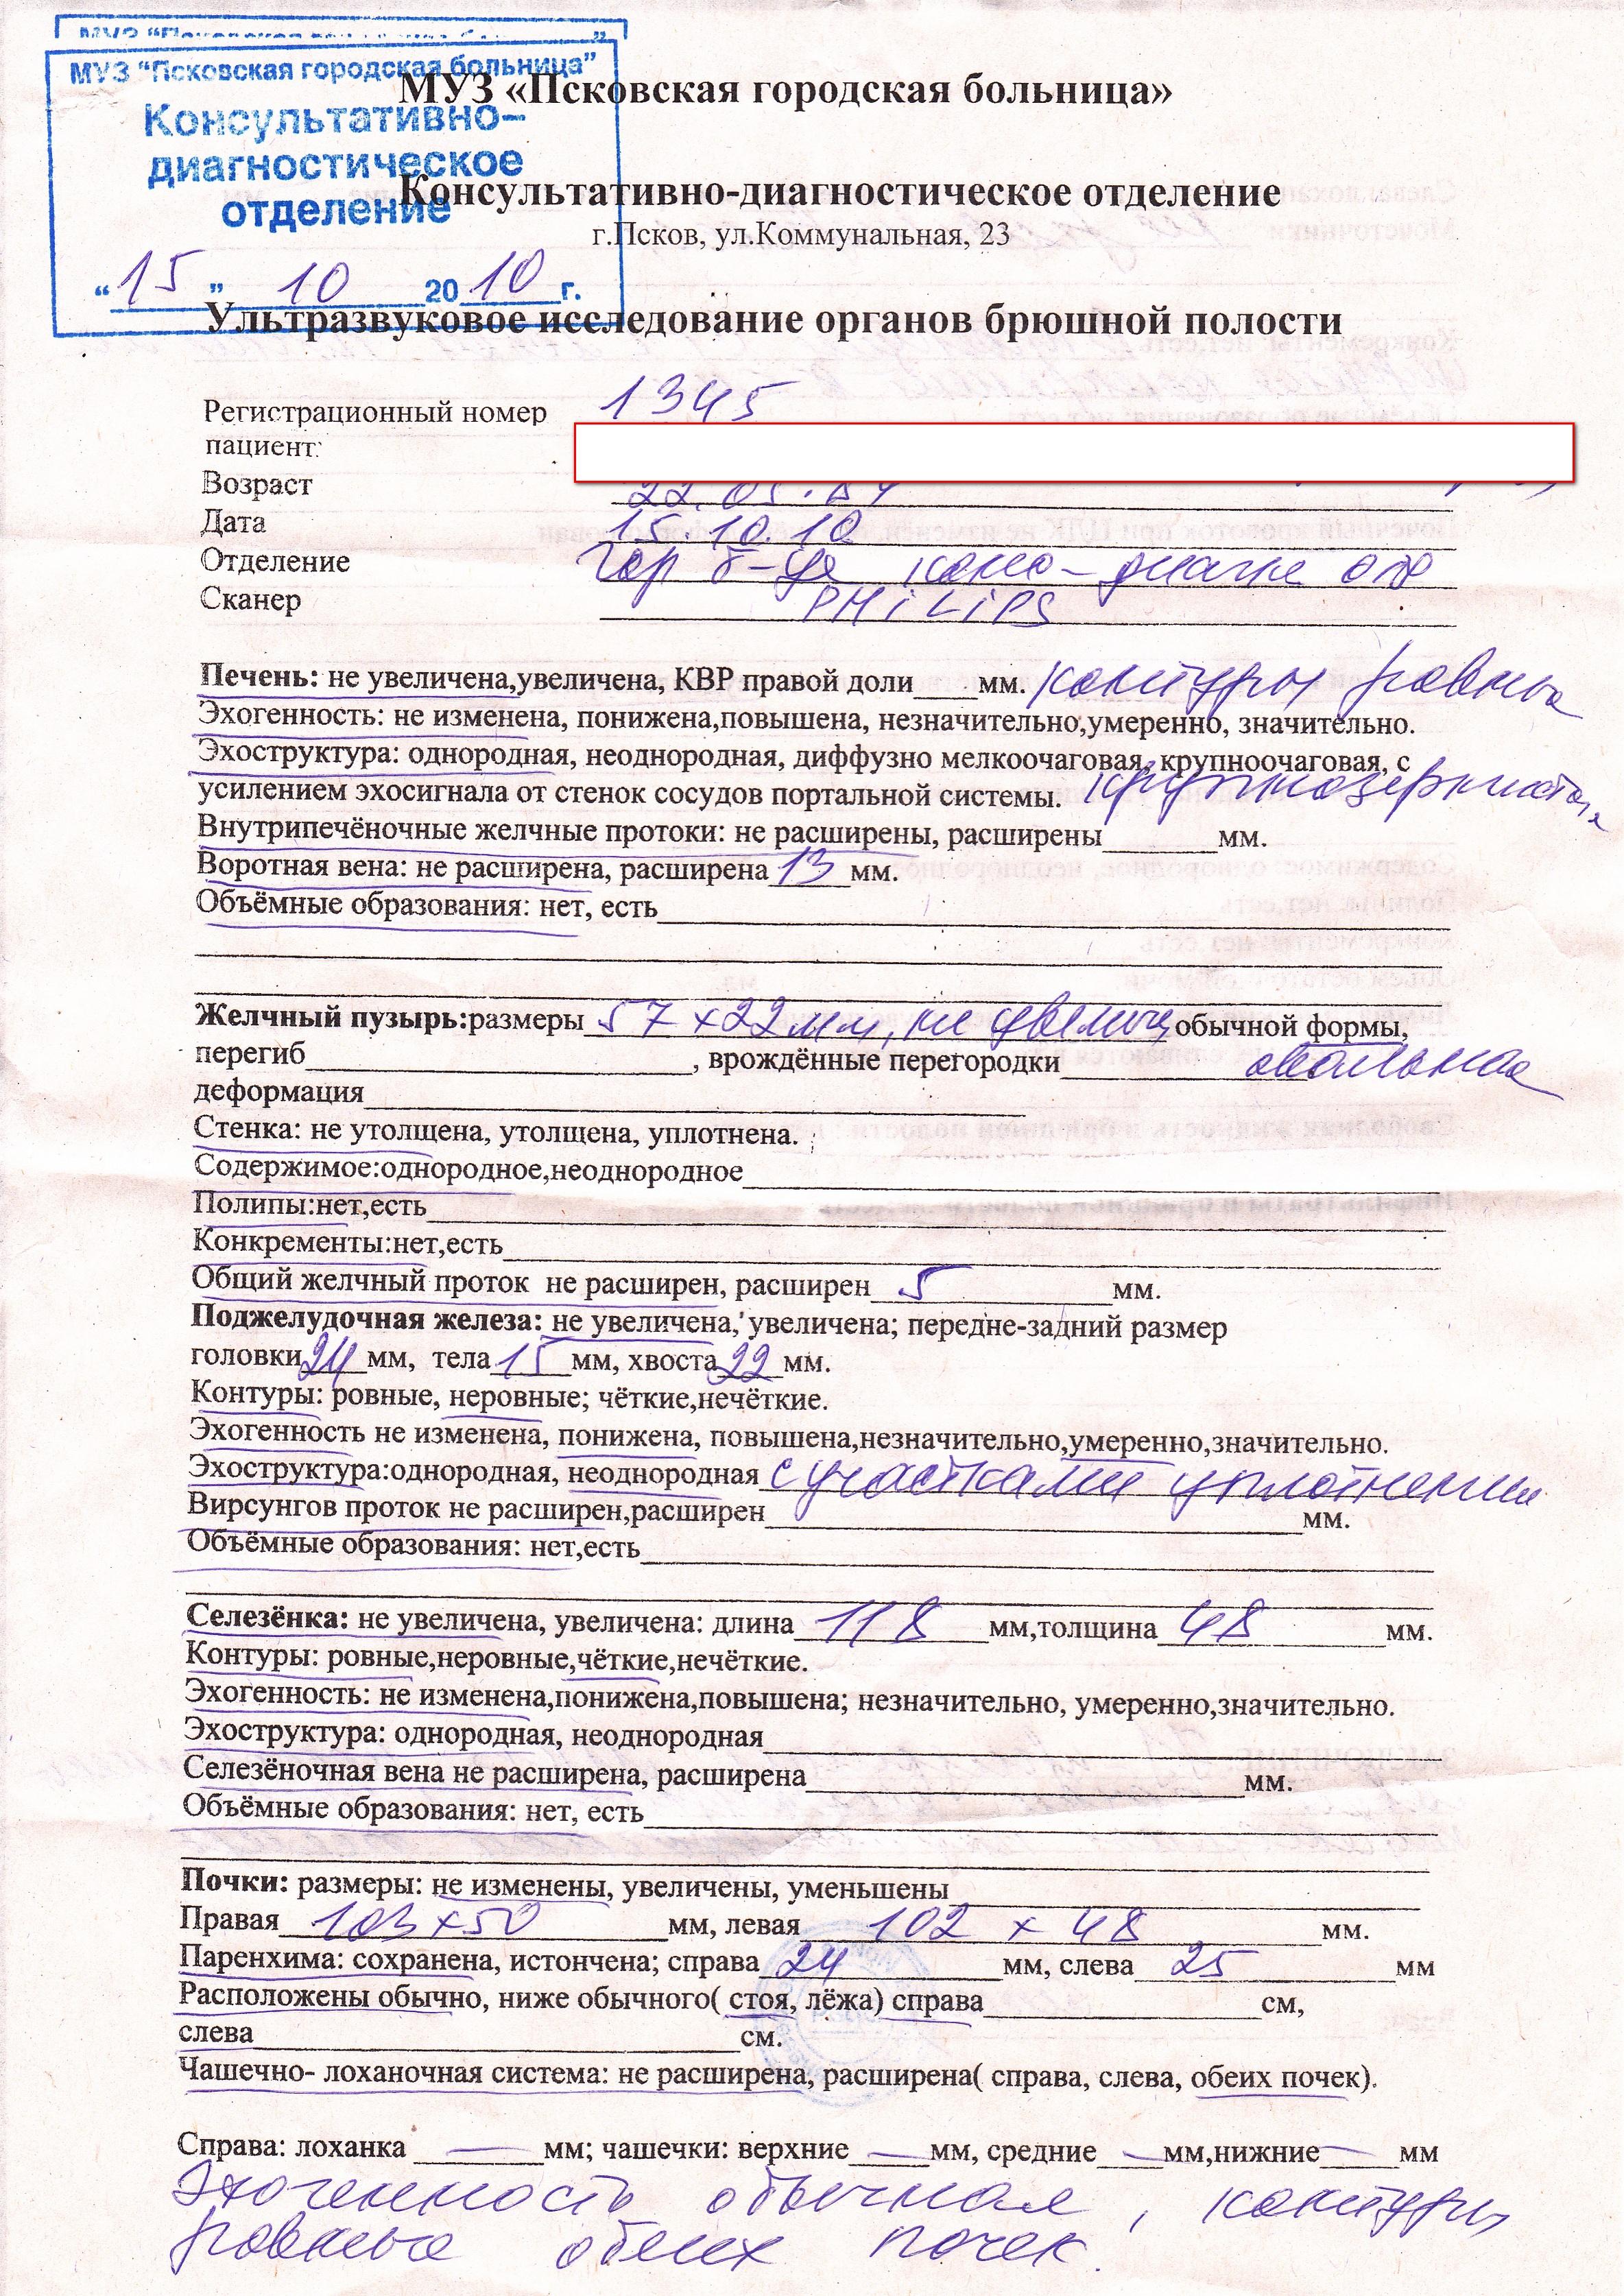 МУЗ "Псковская городская больница"
Консультативно-
диагностическое
отделение
"15" 10 2010 г.
МУЗ «Псковская городская больница»
Консультативно-диагностическое отделение
г.Псков, ул.Коммунальная, 23
Ультразвуковое исследование органов брюшной полости
Регистрационный номер 1345
пациент:
Возраст 22.05.84
Дата 15.10.10
Отделение Гор б-ца
Сканер PHILIPS
Печень: не увеличена,увеличена, КВР правой доли____мм. контуры ровные
Эхогенность: не изменена, понижена,повышена, незначительно,умеренно, значительно.
Эхоструктура: однородная, неоднородная, диффузно мелкоочаговая, крупноочаговая, с
усилением эхосигнала от стенок сосудов портальной системы. крупнозернистая
Внутрипечёночные желчные протоки: не расширены, расширены_______мм.
Воротная вена: не расширена, расширена 13 мм.
Объёмные образования: нет, есть
Желчный пузырь:размеры 57 x 22 мм, не увелич, обычной формы,
перегиб____, врождённые перегородки____ овальная
деформация
Стенка: не утолщена, утолщена, уплотнена.
Содержимое:однородное,неоднородное
Полипы:нет,есть
Конкременты:нет,есть
Общий желчный проток не расширен, расширен 5 мм.
Поджелудочная железа: не увеличена, увеличена; передне-задний размер
головки 24 мм, тела 15 мм, хвоста 22 мм.
Контуры: ровные, неровные; чёткие,нечёткие.
Эхогенность не изменена, понижена, повышена,незначительно,умеренно,значительно.
Эхоструктура:однородная, неоднородная с участками уплотнения
Вирсунгов проток не расширен,расширен____мм.
Объёмные образования: нет,есть
Селезёнка: не увеличена, увеличена: длина 118 мм,толщина 48 мм.
Контуры: ровные,неровные,чёткие,нечёткие.
Эхогенность: не изменена,понижена,повышена; незначительно, умеренно,значительно.
Эхоструктура: однородная, неоднородная
Селезёночная вена не расширена, расширена____мм.
Объёмные образования: нет, есть
Почки: размеры: не изменены, увеличены, уменьшены
Правая 103 x 50 мм, левая 102 x 48 мм.
Паренхима: сохранена, истончена; справа 24 мм, слева 25 мм
Расположены обычно, ниже обычного( стоя, лёжа) справа____см,
слева____см.
Чашечно- лоханочная система: не расширена, расширена( справа, слева, обеих почек).
Справа: лоханка — мм; чашечки: верхние — мм, средние — мм,нижние — мм
Эхогенность обычная, контуры
ровные обеих почек.